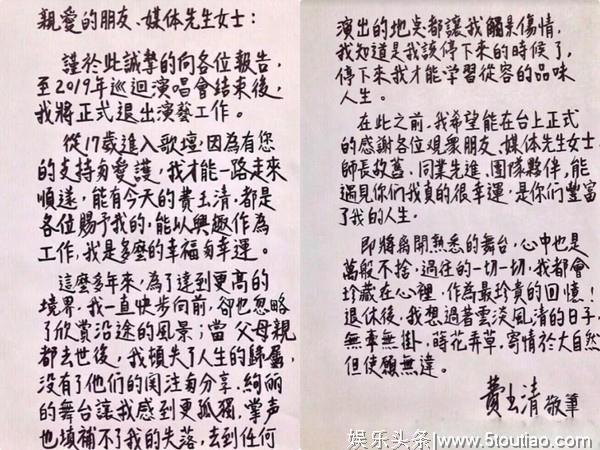 親愛的朋友、媒体先生女士：
謹於此誠摯的向各位報告，
至2019年巡迴演唱會結束後，
我將正式退出演藝工作。
從17歲進入歌壇，因為有您
的支持與愛護，我才能一路走來
順遂，能有今天的費玉清，都是
各位賜予我的，能以興趣作為
工作，我是多麼的幸福與幸運。
這麼多年來，為了達到更高的
境界，我一直快步向前，卻也忽略
了欣賞沿途的風景；當父母親
都去世後，我頓失了人生的歸屬，
沒有了他們的関注與分享，絢麗
的舞台讓我感到更孤獨，掌声
也填補不了我的失落，去到任何
演出的地点都讓我觸景傷情，
我知道是我該停下來的時候了，
停下來我才能學習從容的品味
人生。
在此之前，我希望能在台上正式
的感谢各位觀衆朋友、媒体先生女士、
師長故舊、同業先進、團隊夥伴，能
遇見你們我真的很幸運，是你們豐富
了我的人生。
即將離開熟悉的舞台，心中也是
萬般不捨，過往的一切一切，我都會
珍藏在心裡，作為最珍貴的回憶！
退休後，我想過著雲淡風清的日子，
無牽無掛，蒔花弄草，寄情於大自然
但使願無違。
費玉清 敬筆
娱乐头条|www.5toutiao.com